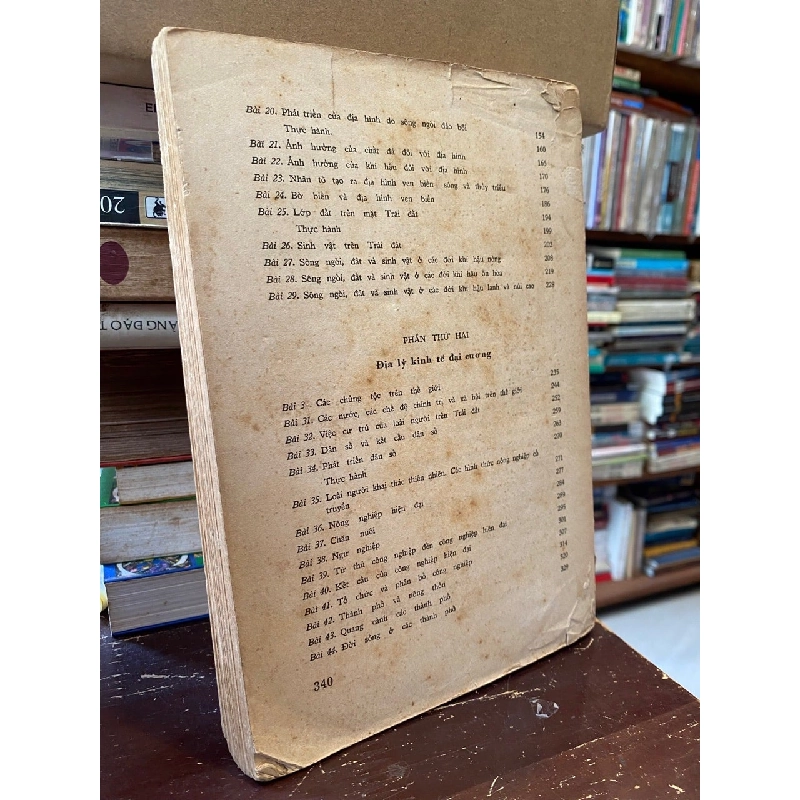 Bài 20. Phát triển của địa hình do sông ngòi đào bồi
Thực hành. 154
Bài 21. Ảnh hưởng của chất đá đối với địa hình 160
Bài 22. Ảnh hưởng của khí hậu đối với địa hình 165
Bài 23. Nhân tố tạo ra địa hình ven biển: sóng và thủy triều 170
Bài 24. Bờ biển và địa hình ven biển 176
Bài 25. Lớp đất trên mặt Trái đất 186
Thực hành 194
Bài 26. Sinh vật trên Trái đất 199
Bài 27. Sông ngòi, đất và sinh vật ở các đới khí hậu nóng 203
Bài 28. Sông ngòi, đất và sinh vật ở các đới khí hậu ôn hòa 219
Bài 29. Sông ngòi, đất và sinh vật ở các đới khí hậu lạnh và núi cao 228
PHẦN THỨ HAI
Địa lý kinh tế đại cương
Bài 3 . Các chủng tộc trên thế giới 235
Bài 31. Các nước, các chế độ chính trị và xã hội trên thế giới 244
Bài 32. Việc cư trú của loài người trên Trái đất 252
Bài 33. Dân số và kết cấu dân số 259
Bài 34. Phát triển dân số 263
Thực hành 270
Bài 35. Loài người khai thác thiên nhiên. Các hình thức nông nghiệp cổ
truyền 271
Bài 36. Nông nghiệp hiện đại 277
Bài 37. Chăn nuôi 284
Bài 38. Ngư nghiệp
Bài 39. Từ thủ công nghiệp đến công nghiệp hiện đại 295
Bài 40. Kết cấu của công nghiệp hiện đại
Bài 41. Tổ chức và phân bố công nghiệp 307
Bài 42. Thành phố và nông thôn 314
Bài 43. Quang cảnh các thành phố 320
Bài 44. Đời sống ở các thành phố
340
ANG ĐẠO T
20